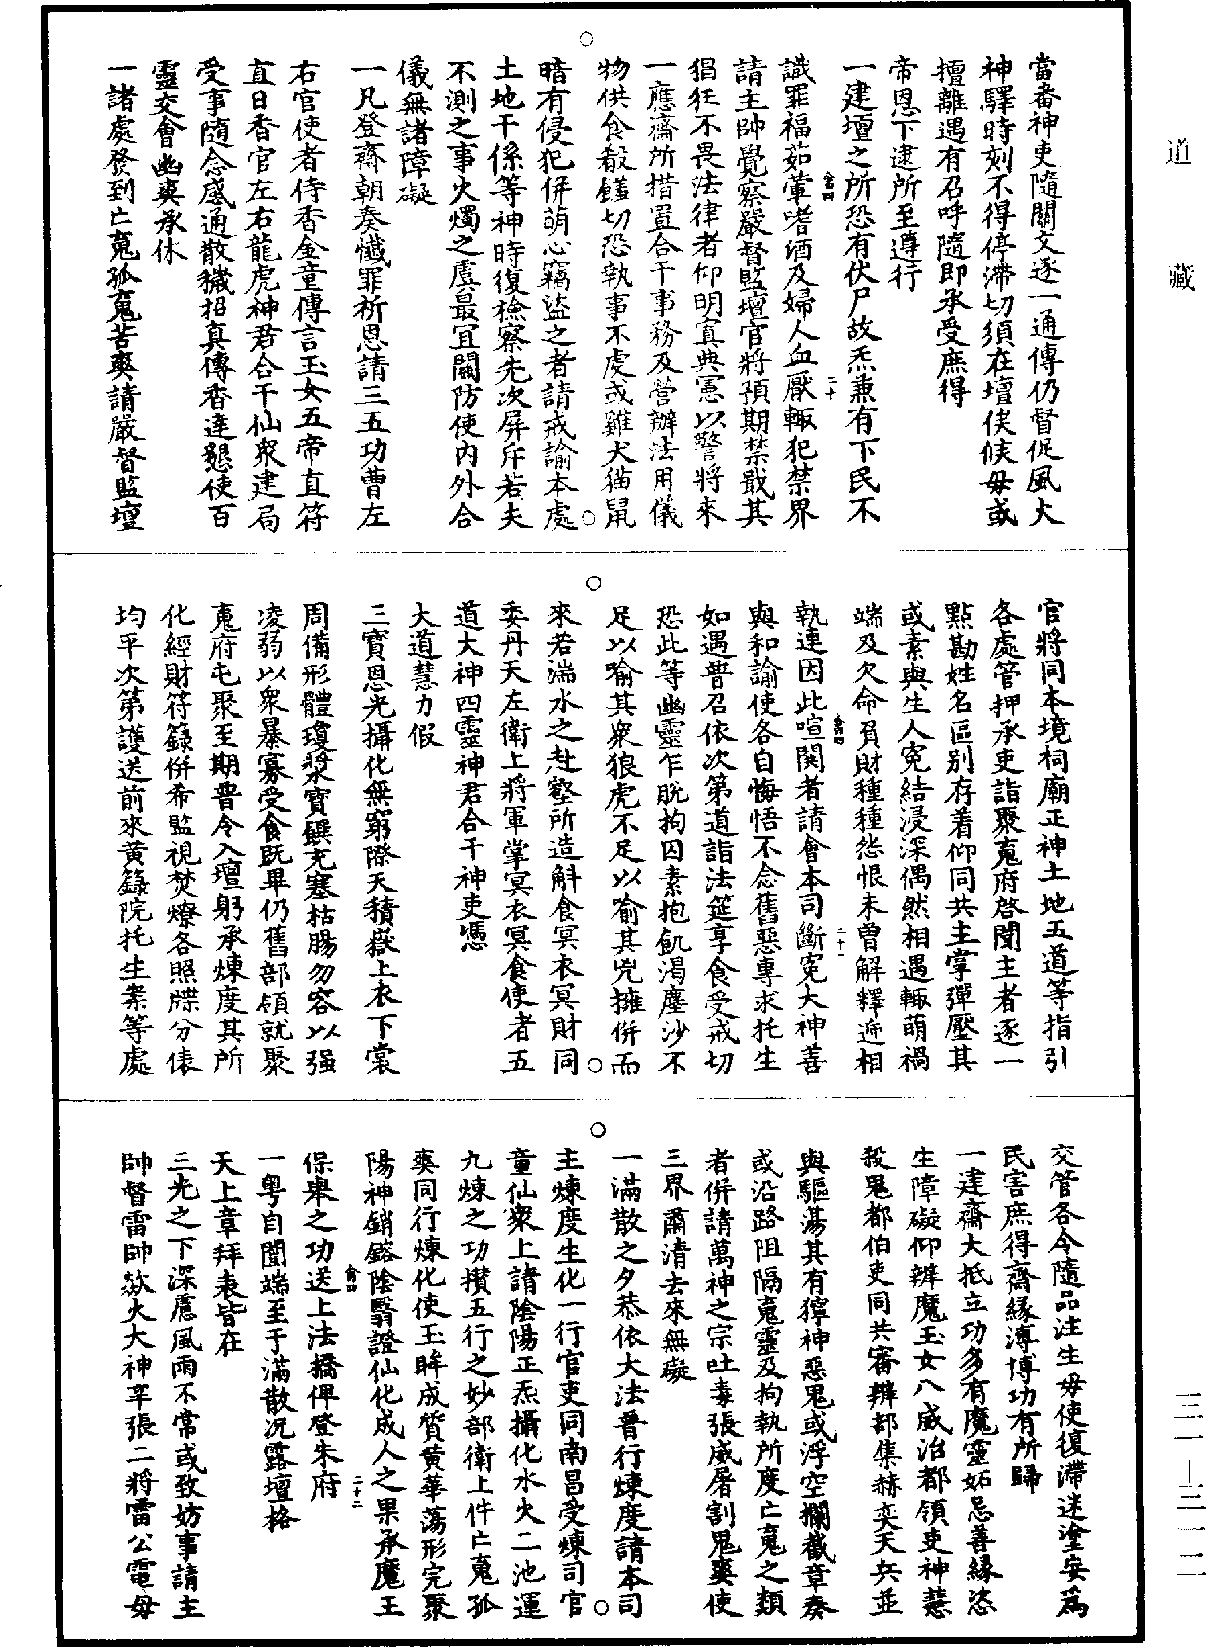 道藏
當畨神吏隨關文逐一通傳仍督促風火
神驛時刻不得停滯切須在壇俟候毋或
擅離遇有召呼隨即承受庶得
帝恩下逮所至遵行
一建壇之所恐有伏尸故炁兼有下民不
識罪福茹葷嗜酒及婦人血厭輒犯禁界
請主帥覺察嚴督監壇官將預期禁戢其
猖狂不畏法律者仰明寘典憲以警將來
一應齋所措置合干事務及營辦法用儀
物供食殽饈切恐執事不虔或雞犬猫鼠
暗有侵犯併萌心竊盜之者請戒諭本處
土地干係等神時復檢察先次屏斥若夫
不測之事火燭之虞最宜關防使内外合
儀無諸障礙
一凡登齋朝奏懺罪祈恩請三五功曹左
右官使者侍香金童傳言玉女五帝直符
直日香官左右龍虎神君合干仙衆建局
受事隨念感通散穢招真傳香達懇使百
靈交會幽爽承休
一諸處發到亡䰟孤䰟苦爽請嚴督監壇
官將同本境祠廟正神土地五道等指引
各處管押承吏詣聚䰟府啓聞主者逐一
點勘姓名區别存着仰同共主掌彈壓其
或素與生人寃結浸深偶然相遇輒萌禍
端及欠命負財種種怨恨未曾解釋遞相
執連因此喧鬨者請會本司斷寃大神善
與和諭使各自悔悟不念舊惡專求托生
如遇普召依次第道詣法筵享食受戒切
恐此等幽靈乍脱拘囚素抱飢渴塵沙不
足以喻其衆狼虎不足以喻其兇擁併而
來若湍水之赴壑所造斛食冥衣冥財同
委丹天左衛上將軍掌冥衣冥食使者五
道大神四靈神君合干神吏憑
大道慧力假
三寶恩光攝化無窮際天積嶽上衣下裳
周備形體瓊漿寶饌充塞枯腸勿容以强
凌弱以衆暴寡受食既畢仍舊部領就聚
䰟府屯聚至期普令入壇躬承煉度其所
化經財符籙併希監視焚燎各照牒分俵
均平次第護送前來黄籙院托生案等處
交管各令隨品注生毋使復滯迷塗妄爲
民害庶得齋縁溥博功有所歸
一建齋大抵立功多有魔靈妬忌善縁恣
生障礙仰辨魔玉女八威治都領吏神慧
殺鬼都伯吏同共審辨部集赫奕天兵並
與驅蕩其有獰神惡鬼或浮空攔截章奏
或沿路阻隔䰟靈及拘執所度亡䰟之類
者併請萬神之宗吐毒張威屠割鬼爽使
三界肅清去來無礙
一滿散之夕恭依大法普行煉度請本司
主煉度生化一行官吏同南昌受煉司官
童仙衆上請陰陽正炁攝化水火二池運
九煉之功攅五行之妙部衛上件亡䰟孤
爽同行煉化使玉眸成質黄華蕩形完聚
陽神銷鎔陰翳證仙化成人之果承魔王
保舉之功送上法橋俾登朱府
一粤自開端至于滿散況露壇格
天上章拜表皆在
三光之下深慮風雨不常或致妨事請主
帥督雷帥欻火大神辛張二將雷公電母
三一—三一二